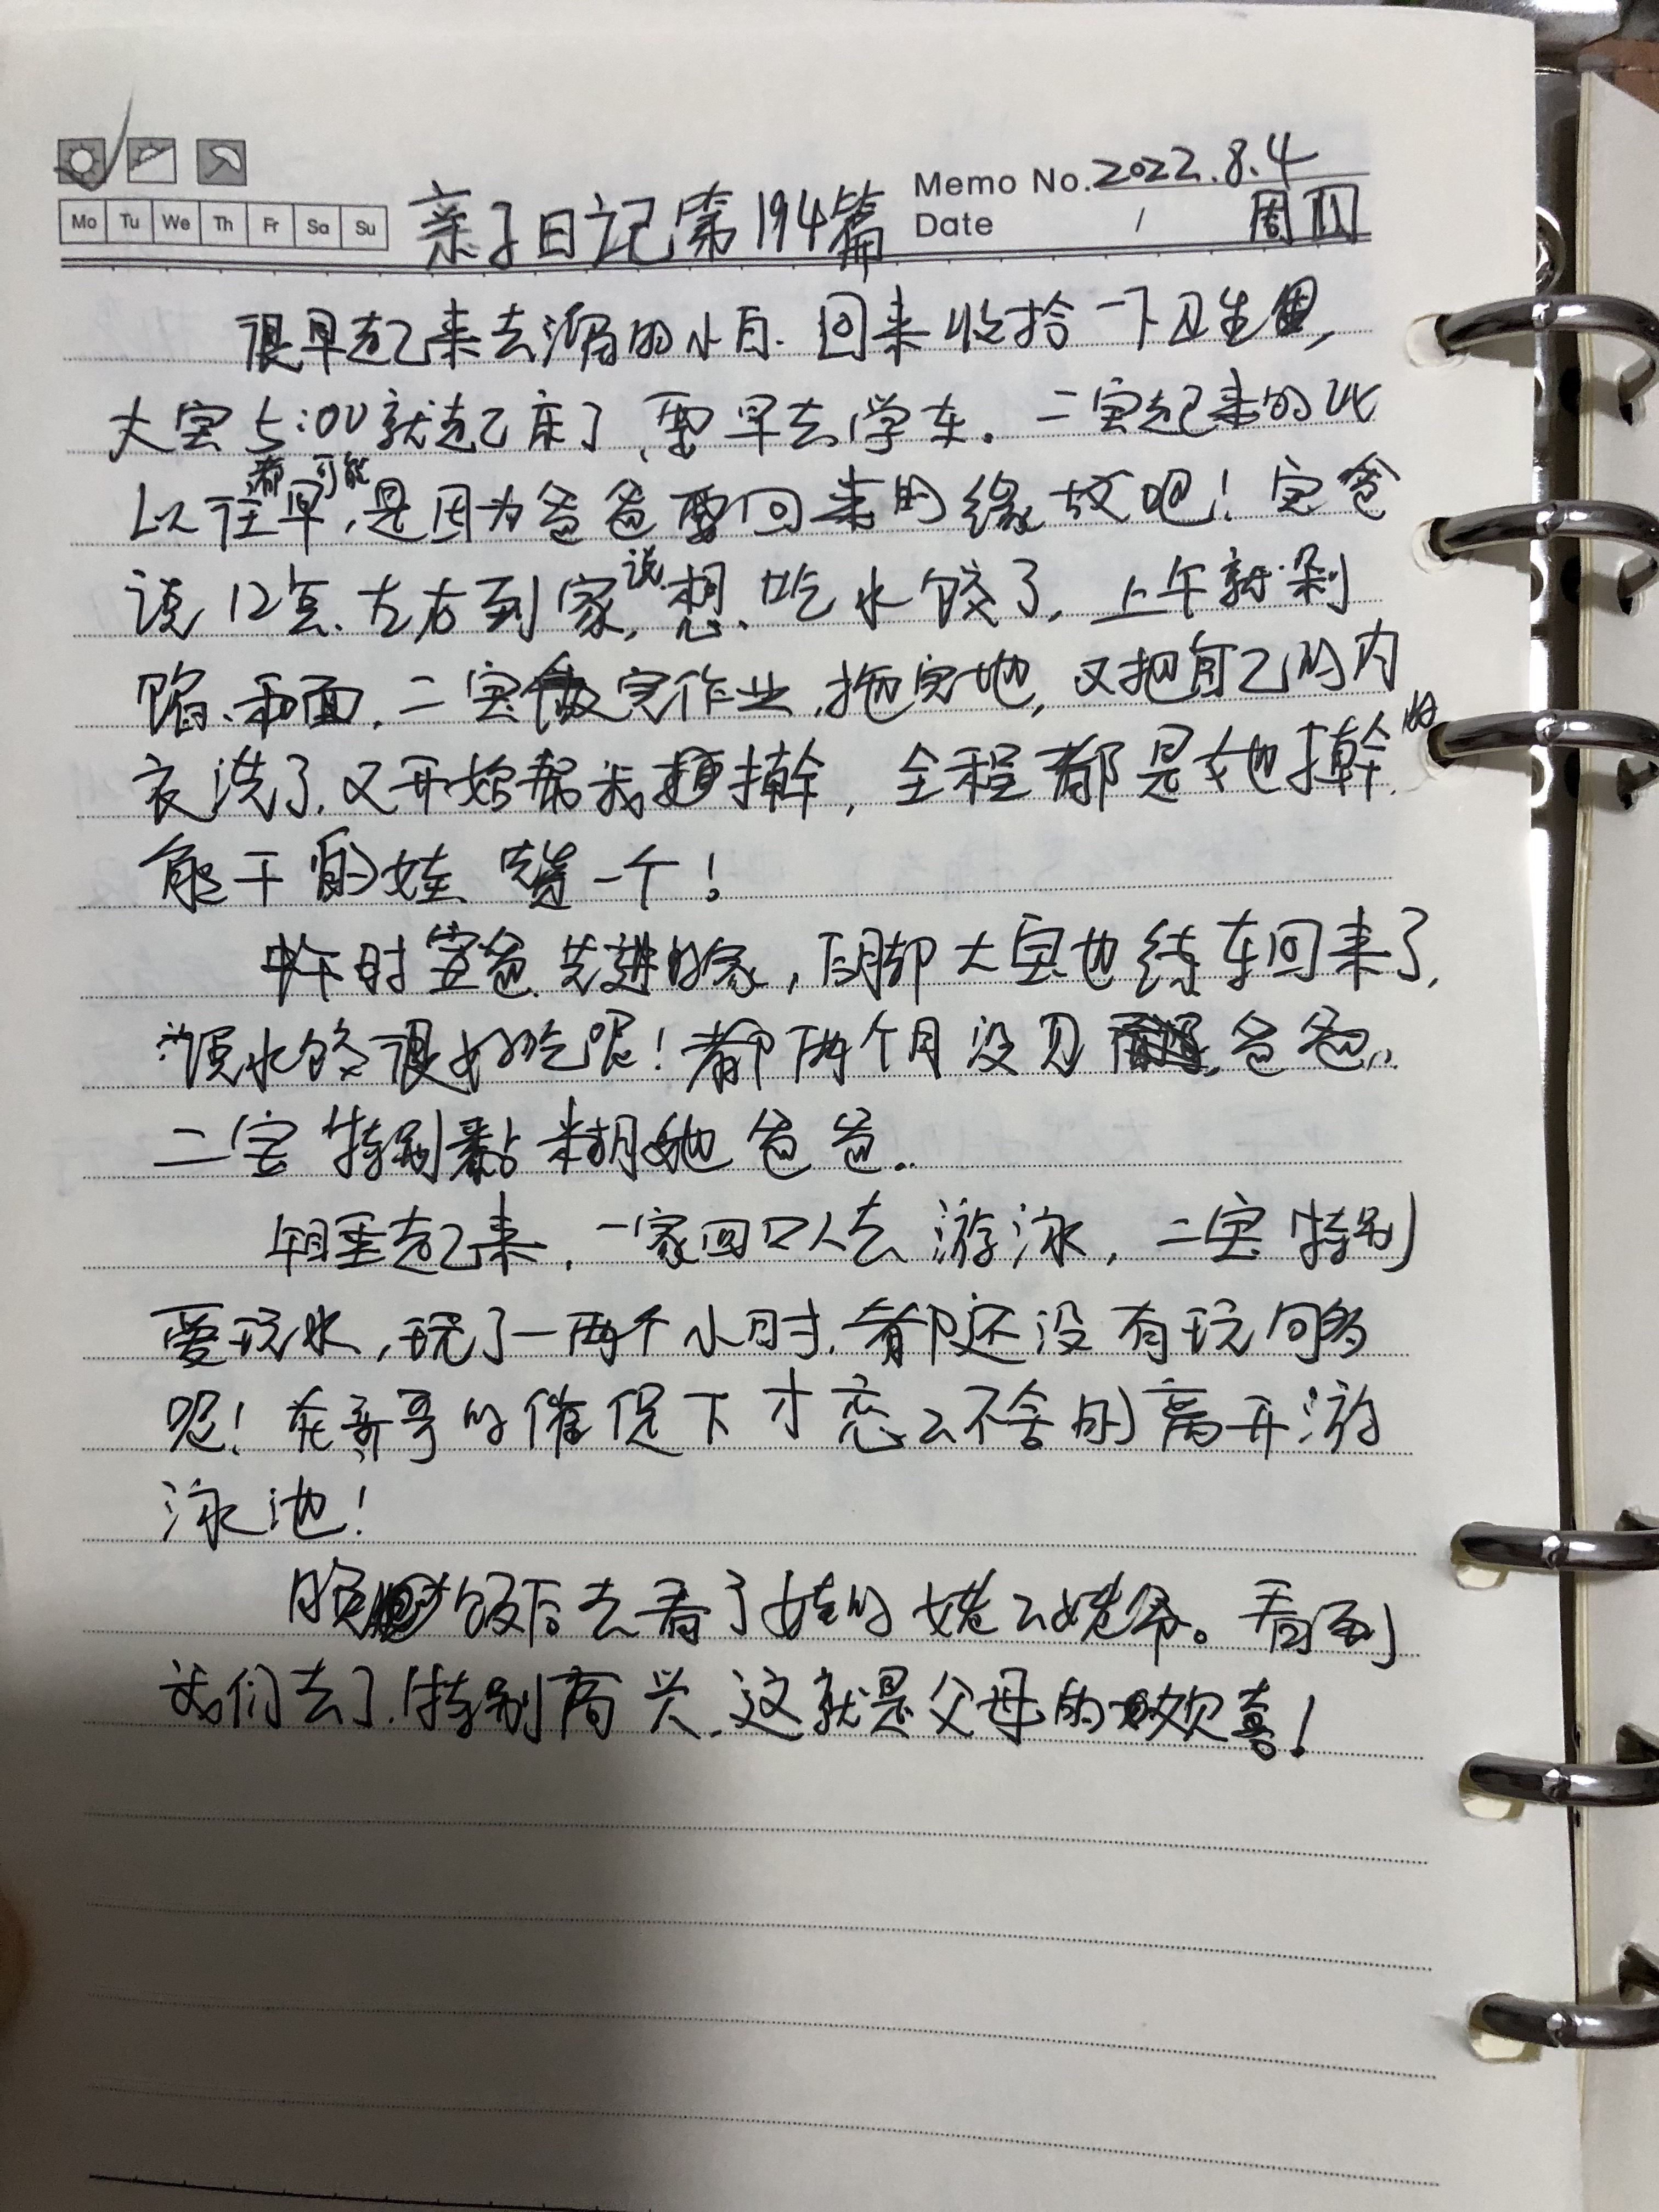 Memo No. 2022.8.4
Mo Tu We Th Fr Sa Su
亲子日记第194篇
Date / 周四
很早起来去溜的小白.回来收拾一下卫生,
大宝5:00就起床了,要早去学车。二宝起来的比
以往都早,可能是因为爸爸要回来的缘故吧!宝爸
说12点左右到家,说想吃水饺了,上午就剁
馅、和面,二宝做完作业,拖完地,又把自己的内
衣洗了,又开始帮我擀,全程都是她擀的
能干的娃 赞一个!
中午时宝爸先进的家,随即大宝也练车回来了,
水饺很好吃呢!都两个月没见爸爸..
二宝特别黏糊她爸爸..
午睡起来,一家四口人去游泳,二宝特别
爱玩水,玩了一两个小时,都还没有玩够
呢!在哥哥的催促下才恋恋不舍的离开游
泳池!
晚饭后去看了娃的姥姥姥爷。看到
我们去了,特别高兴,这就是父母的欢喜!